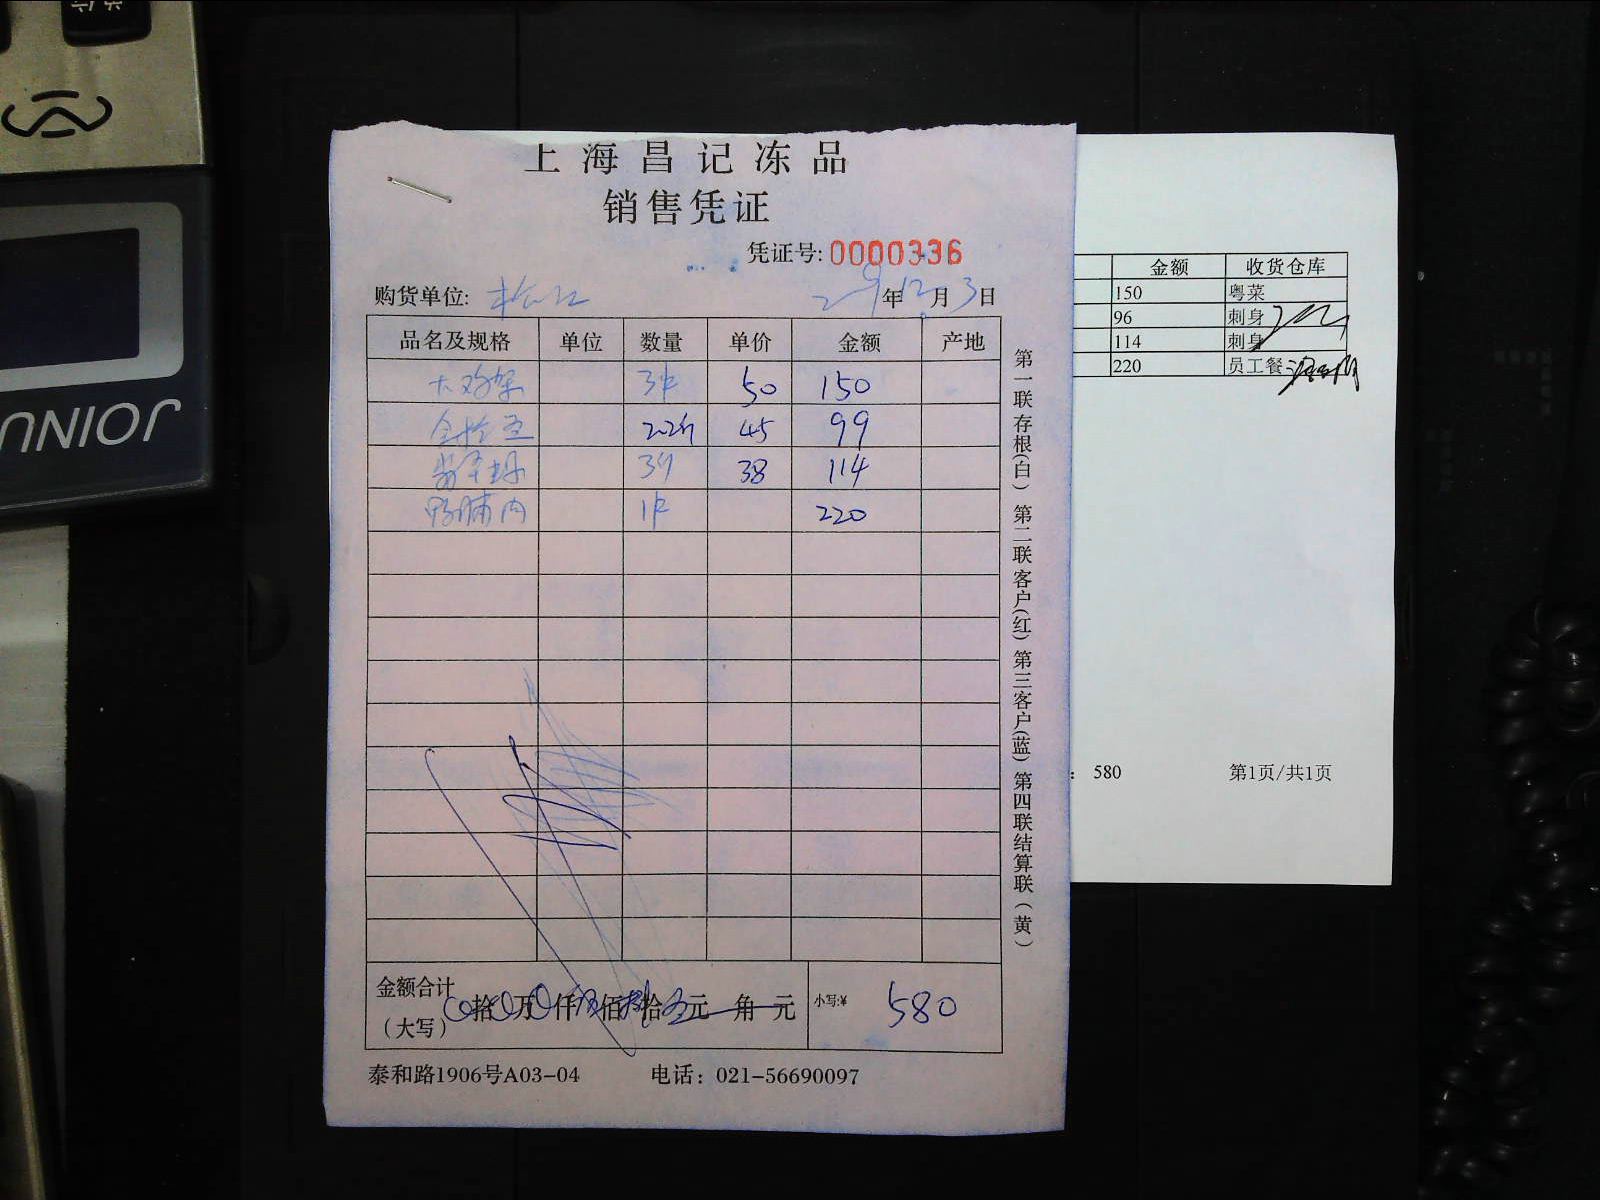 JOINU
上海昌记冻品
销售凭证
凭证号: 0000336
购货单位: 年12月3日
品名及规格 单位 数量 单价 金额 产地
大鸡架 3 50 150
45 99
3 38 114
鸭脯肉 1 220
金额合计
(大写) 拾 万 仟 佰 拾 元 角 元 小写:¥ 580
泰和路1906号A03-04 电话：021-56690097
第一联存根(白) 第二联客户(红) 第三客户(蓝) 第四联结算联(黄)
金额 收货仓库
150 粤菜
96 刺身
114 刺身
220 员工餐
: 580 第1页/共1页